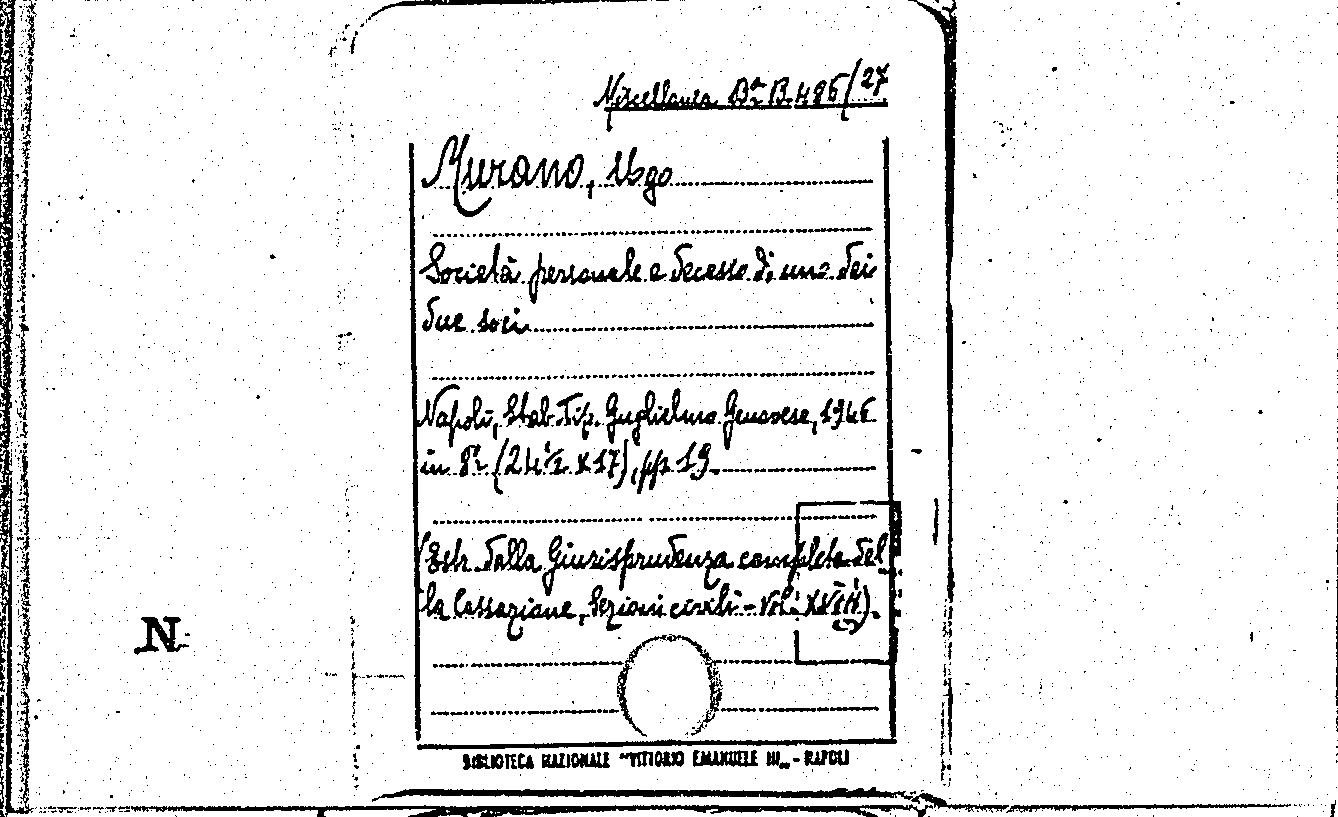 Miscellanea Ba B. 486/27
Murano, Ugo
Società personale e decesso di uno dei
due soci
Napoli, Stab. Tip. Guglielmo Genovese, 194
in 8° (24½ x 17), pp. 19.
(Estr. dalla Giurisprudenza completa del
la Cassazione, Sezioni civili - Vol.
N
BIBLIOTECA NAZIONALE "VITTORIO EMANUELE III" - NAPOLI